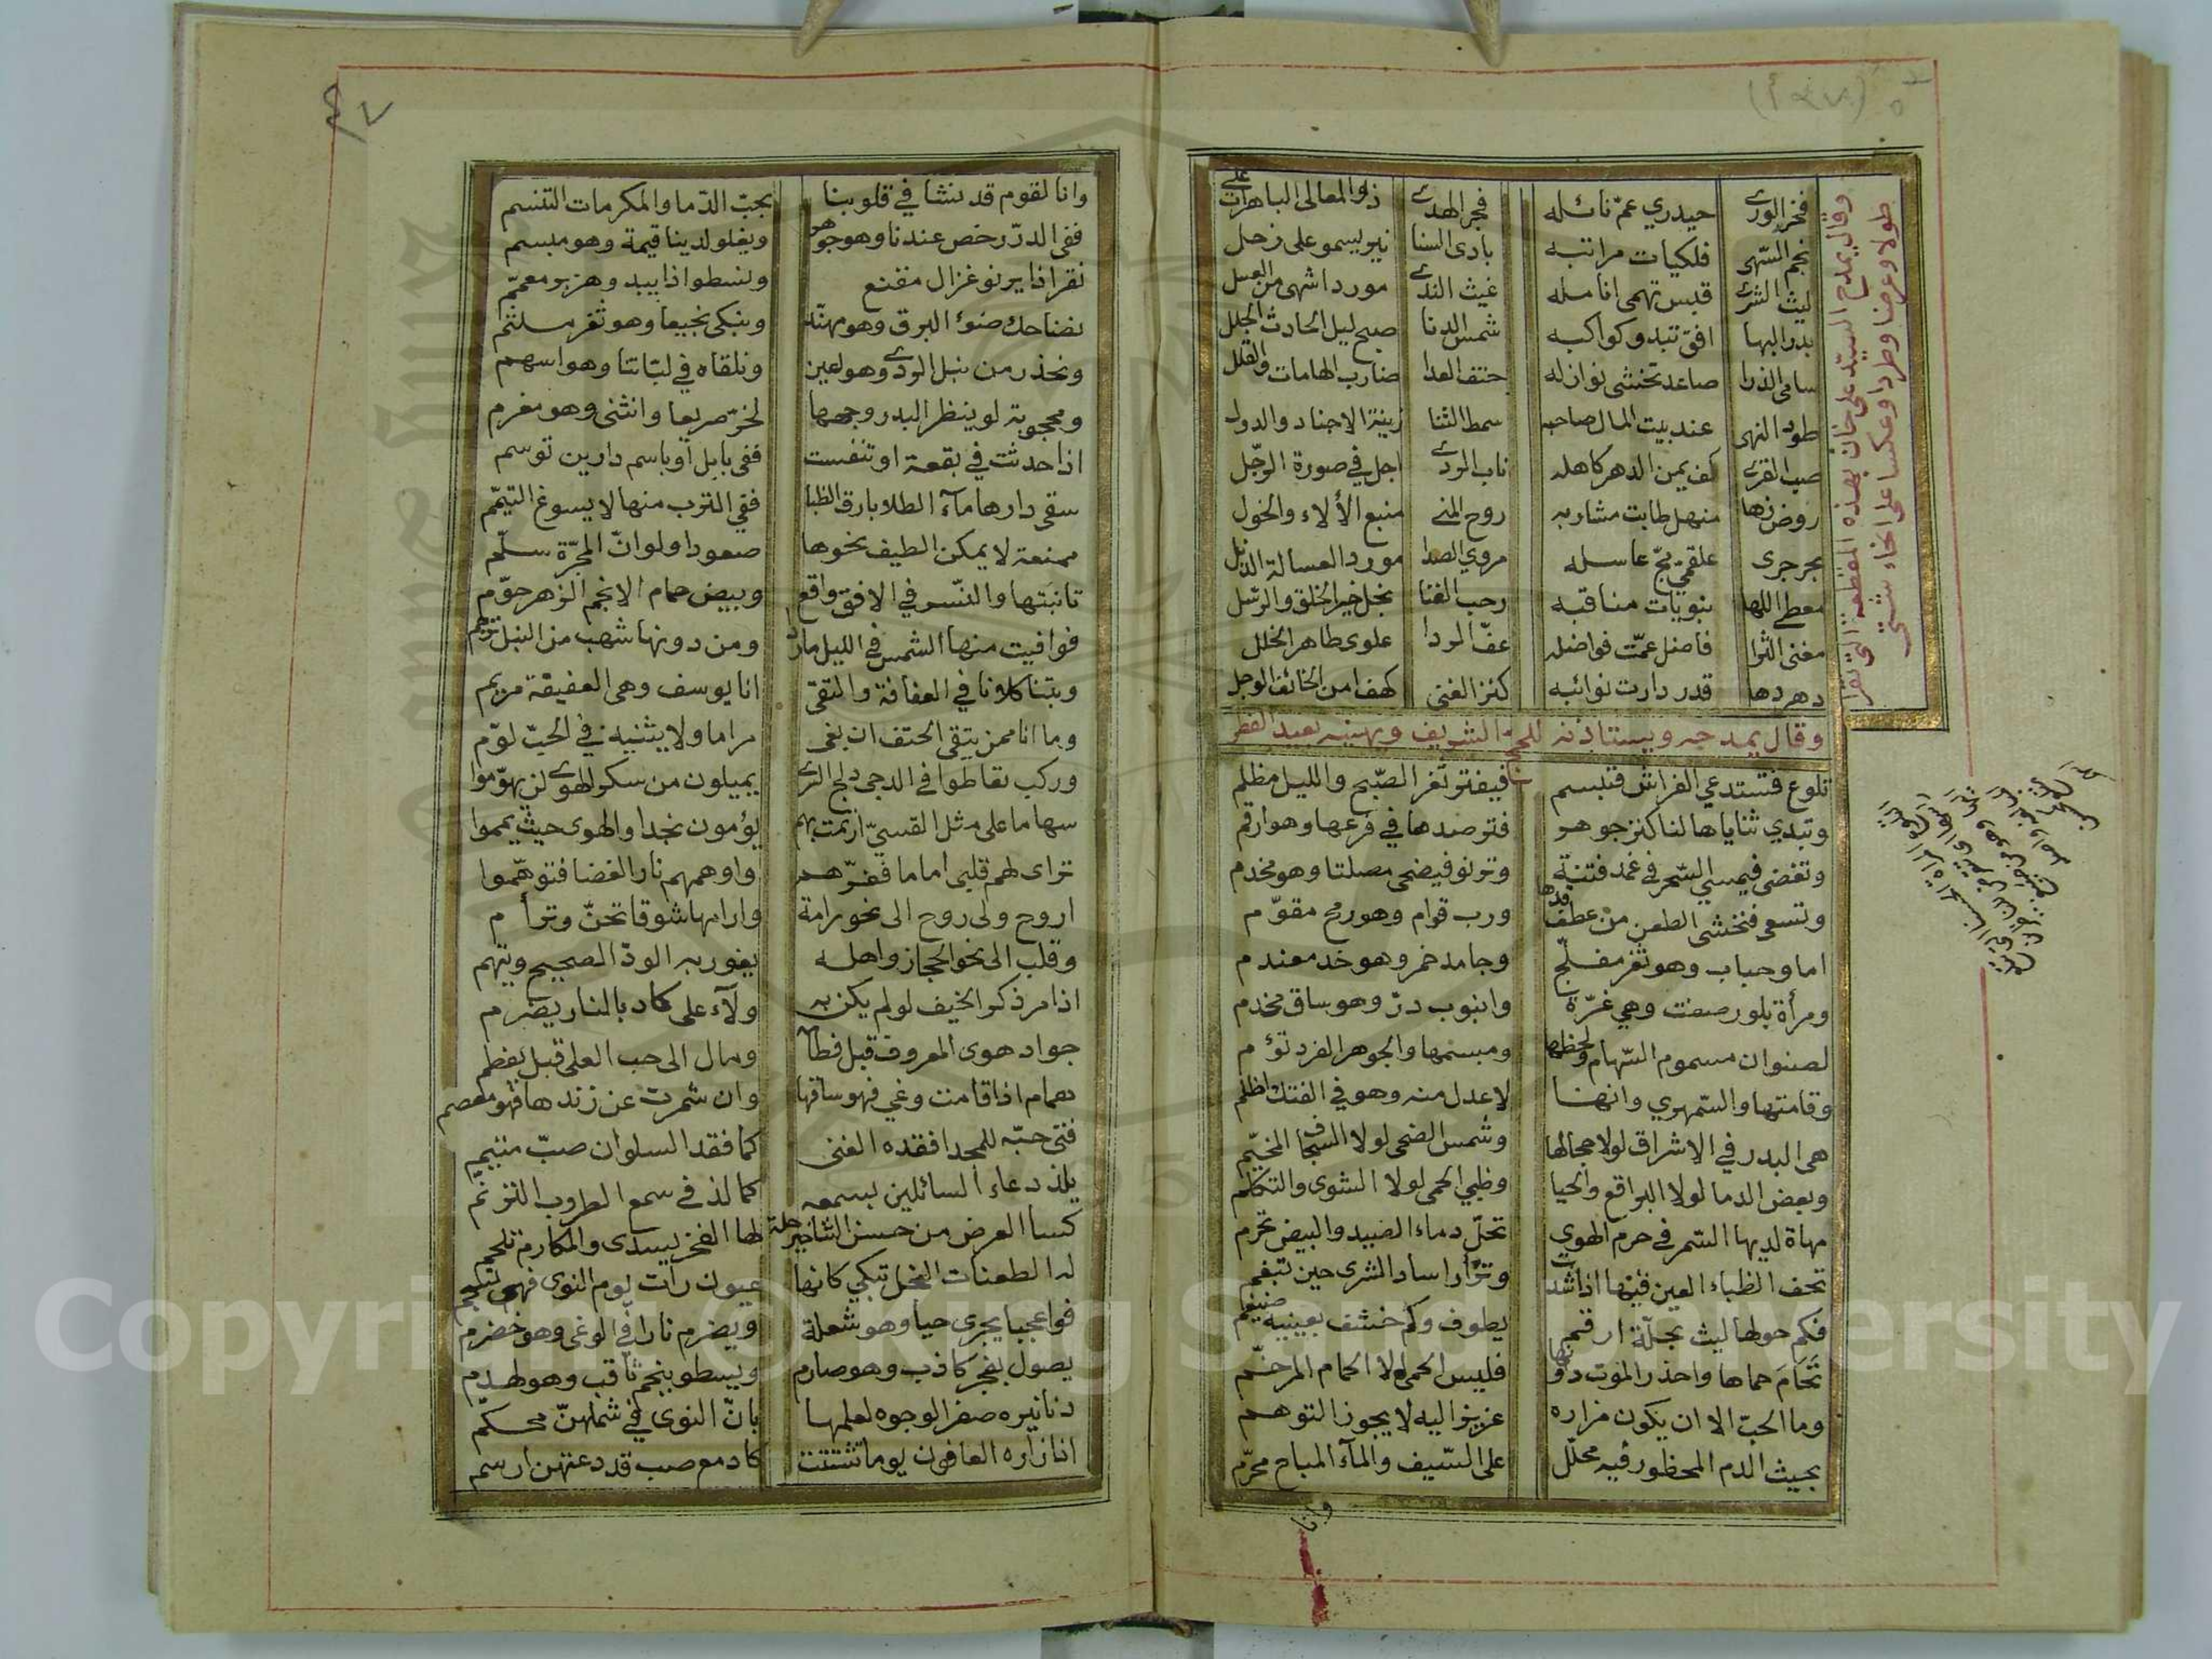 وقال يمدح السيد على خان بهذه القطعة التى تقرا
طولا وعرضا وطردا وعكسا على انحاء شتى
فخر الورى حيدري عمّ نائله فجر الهدى ذو المعالى الباهرات على
نجم السهى فلكيات مراتبه بادى السنا نير يسمو على زحل
ليث الشرى قبس تهمى انامله غيث الندى مورد اشهى من العسل
بدر البها افق تبدو كواكبه شمس الدنا صبح ليل الحادث الجلل
سامى الذرا صاعد تخشى نوازله حتف العدا ضارب الهامات والقلل
طود النهى عند بيت المال صاحبه سمط الثنا زينة الاجناد والدول
صب القرى كف يمن الدهر كاهله ناب الردى اجل في صورة الرجل
روض زها منهل طابت مشاربه روح المنى منبع الألاء والخول
بحر جرى علقمي بجّ عاسله مروي الصدا مورد العسالة الذبل
معطى اللها نبويات مناقبه رحب الفنا نجل خير الخلق والرسل
مغنى الثوا فاضل عمّت فواضله عفّ الردا علوى طاهر الخلل
دهر دها قدر دارت نوائبه كنز الغنى كهف امن الخائف الوجل
وقال يمدحه ويستاذنه للحج الشريف ويهنيه بعيد الفطر
تلوع فتستدعي الفراش فتبسم فيفتر ثغر الصّبح والليل مظلم
وتبدي ثناياها لنا كنز جوهر فترصدها في فرعها وهو ارقم
وتغضى فيمسي السّحر في غمد فتنة وترنو فيضحى مصلتا وهو مخدم
وتسعى فنخشى الطعن من عطف قدها ورب قوام وهو رمح مقوّم
اما وحباب وهو ثغر مفلّج وجامد خمر وهو خد معندم
ومرأة بلور صفت وهي غرّة وانبوب درّ وهو ساق مخدم
لصنوان مسموم السّهام ولحظها ومبسمها والجوهر الفرد تؤم
وقامتها والسّمهري وانهنا لاعدل منه وهو في الفتك اظلم
هى البدر في الاشراق لولا حجالها وشمس الضحى لولا السجاف المخيّم
وبعض الدما لولا البراقع والحيا وظبي الحمى لولا الشوى والتكلم
مهاة لديها السّمر في حرم الهوى تحلّ دماء الصيد والبيض تحرم
تحف الظباء العين فيها اذا شدت وتزأر اساد الشرى حين تبغم
فكم حولها ليث بحلّة ارقم يطوف وكم خشف بعينيه ضيغم
تَحَامَ حماها واحذر الموت دونها فليس الحمى لولا الحمام المرخّم
وما الحبّ الا ان يكون مزاره عزيزا اليه لا يجوز التوهم
بحيث الدم المحظور فيه محلّل على السّيف والمآء المباح محرّم
وانا
وانا لقوم قد نشا في قلوبنا بحبّ الدّما والمكرمات التنسم
ففى الدرّ رخص عندنا وهو جوهر ويغلو لدينا قيمة وهو مبسم
نفر اذا يرنو غزال مقنع ونسطو اذا يبد وهزبر معمّم
نضاحك ضوء البرق وهو مهنّد ونبكى نجيعا وهو ثغر ملثم
ونحذر من نبل الردى وهو لعين ونلقاه في لبّاتنا وهو اسهم
ومحجوبة لو ينظر البدر وجهها لخرّ صريعا وانثنى وهو مغرم
اذا حدثت في بقعة او تنفست ففى بابل أو باسم دارين توسم
سقى دارها مآء الطلا بارق الظبا ففي الترب منها لا يسوغ التيمّم
ممنعة لا يمكن الطيف نحوها صعودا ولو انّ المجرّة سلّم
تانبتها والنّسر في الافق واقع وبيض حمام الانجم الزهر حوّم
فوافيت منها الشمس في الليل مارد ومن دونها شهب من النبل ترجم
وبتنا كلانا في العفافة والتقى انا يوسف وهى العفيفة مريم
وما انا ممن يتقى الحتف ان بغى مراما ولا يثنيه في الحبّ لوّم
وركب تقاطوا في الدجى دلج السرى يميلون من سكر الهوى لن يهوّموا
سهاما على مثل القسيّ ارتمت بهم يؤمون نجدا والهوى حيث يمموا
تراى لهم قلبى اماما ففرّهم واوهمهم نار الغضا فتوهّموا
اروح ولى روح الى نحو رامة وارامها شوقا تحنّ وترأم
وقلب الى نحو الحجاز واهله يغور به الودّ الصحيح ويتهم
اذا مر ذكر الخيف لو لم يكن به ولآء على كاد بالنار يضرم
جواد هوى المعروف قبل فطامه ومال الى حب العلى قبل يفطم
همام اذا قامت وغي فهو ساقها وان شمرت عن زندها فهو معصم
فتى حبّه للمجد افقده الغنى كما فقد السلوان صبّ متيم
يلذ دعاء السائلين بسمعه كما لذ في سمع الطروب الترنّم
كسا العرض من حسن الثنا خير حلة لها الفخر يسدى والمكارم تلحم
له الطعنات النجل تبكي كانها عيون رات يوم النوى فهى تسجم
فوا عجبا يجرى حيا وهو شعلة ويضرم نارا في الوغى وهو خضرم
يصول بفجر كاذب وهو صارم ويسطو بنجم ثاقب وهو لهذم
دنانيره صفر الوجوه لعلمها بانّ النوى في شملهنّ محكّم
اذا زاره العافون يوما تشتتت كادمع صب قد دعتهن ارسم